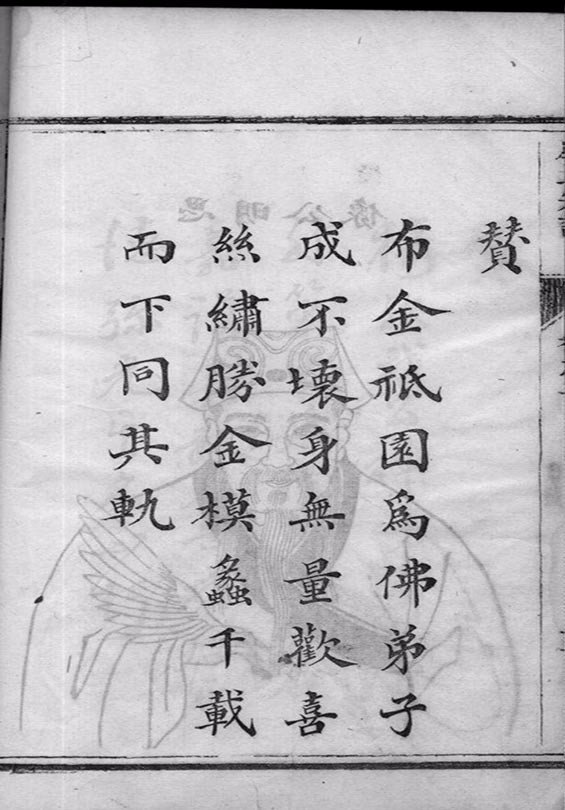 贊
布金祗園爲佛弟子
成不壞身無量歡喜
絲繡勝金模蠡千載
而下同其軌
思明公像